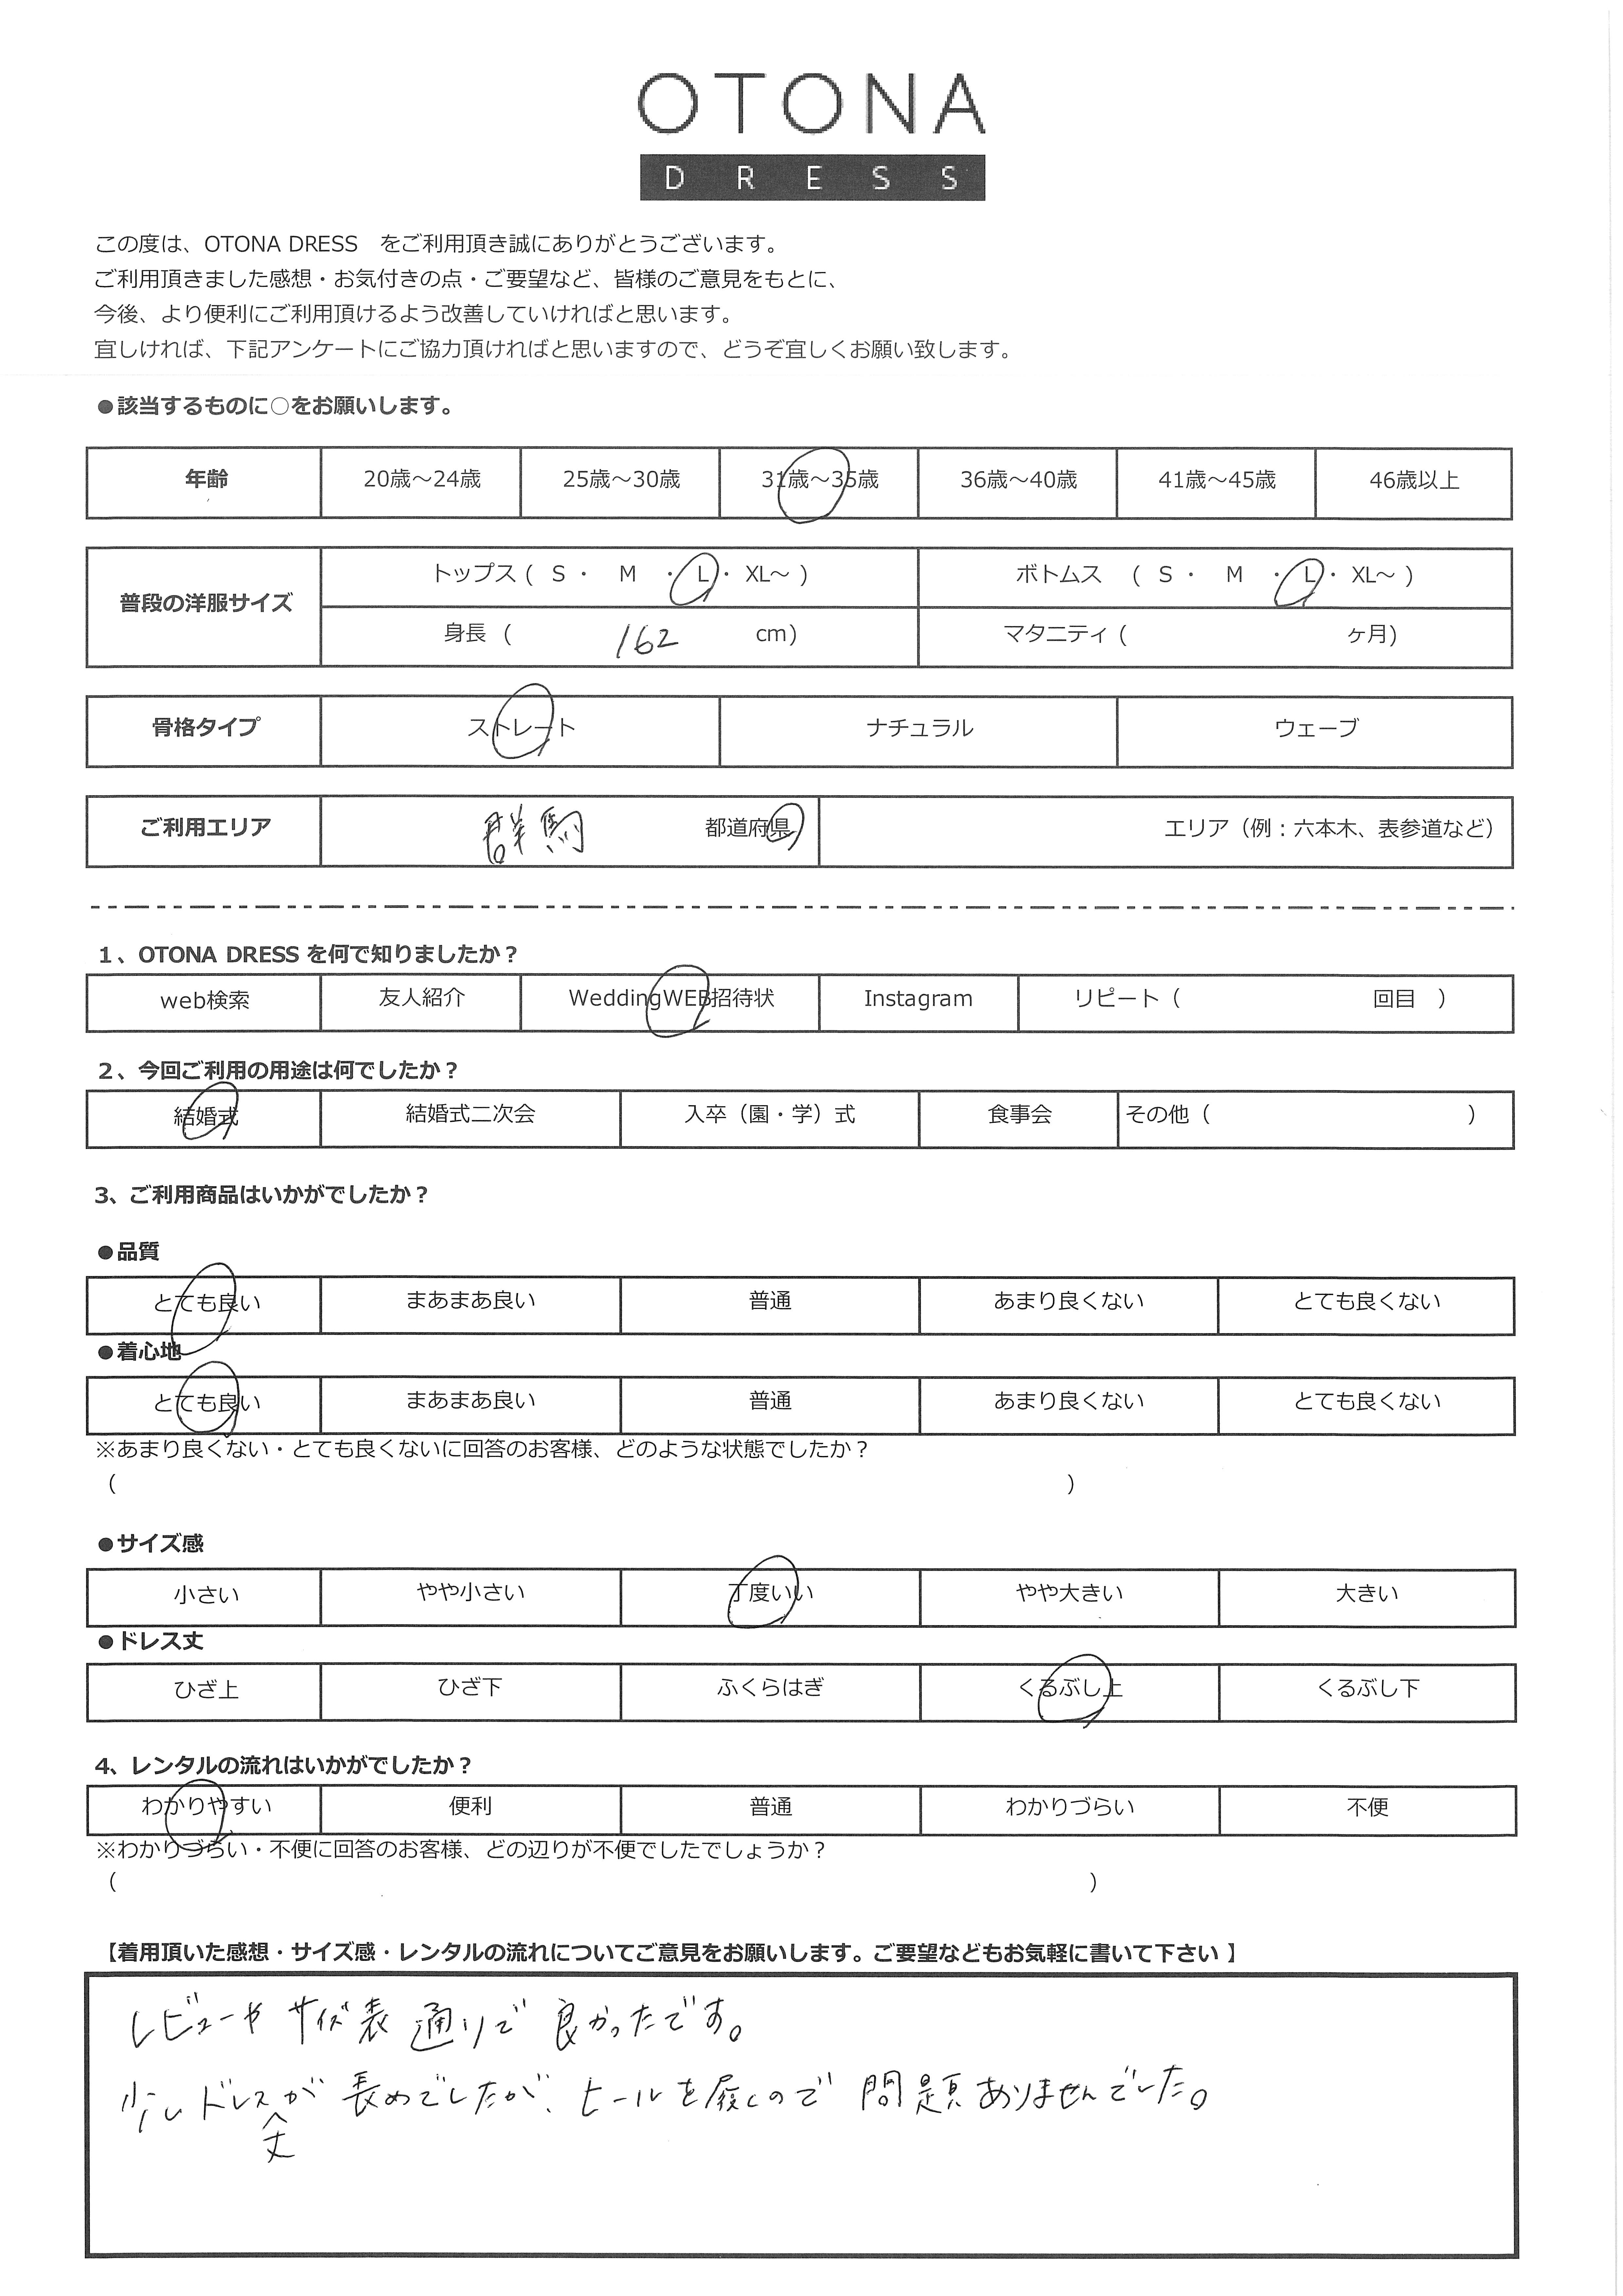 OTONA
DRESS
この度は、OTONA DRESS　をご利用頂き誠にありがとうございます。
ご利用頂きました感想・お気付きの点・ご要望など、皆様のご意見をもとに、
今後、より便利にご利用頂けるよう改善していければと思います。
宜しければ、下記アンケートにご協力頂ければと思いますので、どうぞ宜しくお願い致します。
●該当するものに○をお願いします。
年齢 20歳～24歳 25歳～30歳 31歳～35歳 36歳～40歳 41歳～45歳 46歳以上
普段の洋服サイズ トップス ( S ・ M ・ L ・ XL～ ) ボトムス ( S ・ M ・ L ・ XL～ )
身長 ( 162 cm) マタニティ ( ヶ月)
骨格タイプ ストレート ナチュラル ウェーブ
ご利用エリア 群馬 都道府県 エリア（例：六本木、表参道など）
1、OTONA DRESS を何で知りましたか？
web検索 友人紹介 WeddingWEB招待状 Instagram リピート（ 回目 ）
2、今回ご利用の用途は何でしたか？
結婚式 結婚式二次会 入卒（園・学）式 食事会 その他（ ）
3、ご利用商品はいかがでしたか？
●品質
とても良い まあまあ良い 普通 あまり良くない とても良くない
●着心地
とても良い まあまあ良い 普通 あまり良くない とても良くない
※あまり良くない・とても良くないに回答のお客様、どのような状態でしたか？
（ ）
●サイズ感
小さい やや小さい 丁度いい やや大きい 大きい
●ドレス丈
ひざ上 ひざ下 ふくらはぎ くるぶし上 くるぶし下
4、レンタルの流れはいかがでしたか？
わかりやすい 便利 普通 わかりづらい 不便
※わかりづらい・不便に回答のお客様、どの辺りが不便でしたでしょうか？
（ ）
【着用頂いた感想・サイズ感・レンタルの流れについてご意見をお願いします。ご要望などもお気軽に書いて下さい】
レビューや サイズ表 通りで 良かったです。
少し ドレス丈が 長めでしたが、ヒールを履くので 問題ありませんでした。